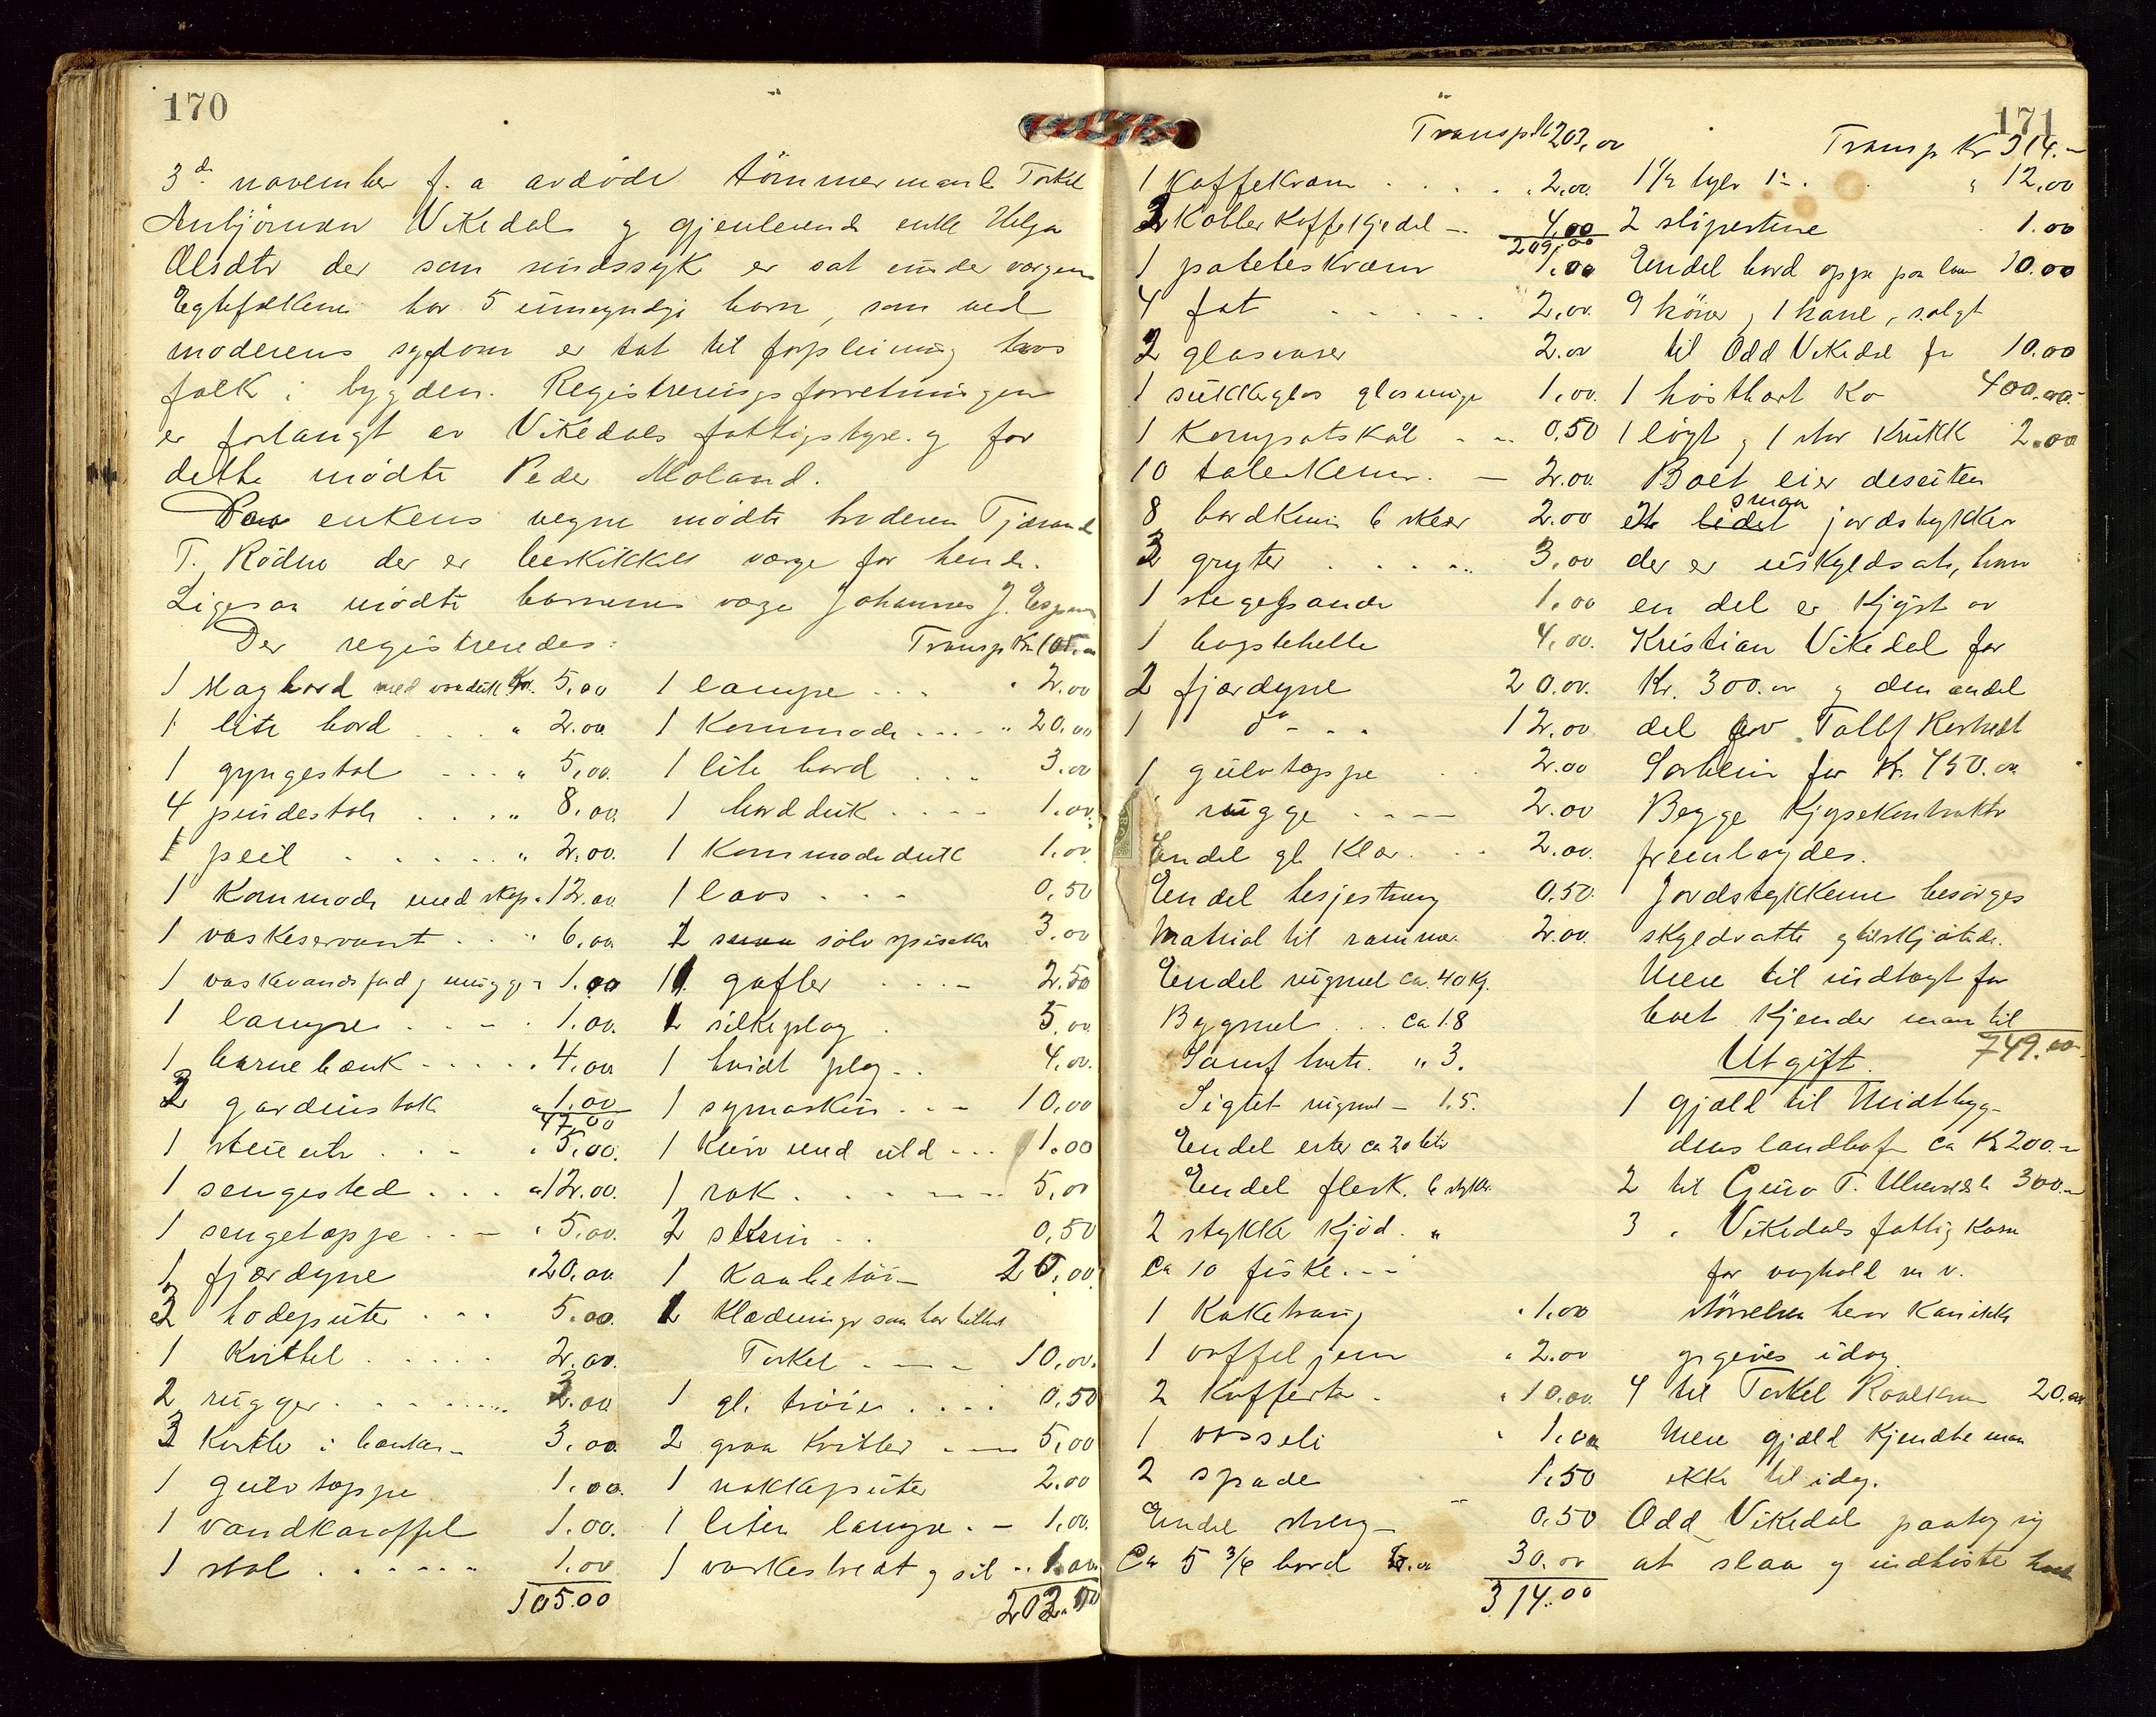 170
3de november f. a avdöde tömmermand Torkel
Anbjörnsen Vikedal og gjenlevende enke Helga
Olsdtr der som sindssyk er sat under vorgem.
Egtefolkene har 5 umyndige barn, som ved
moderens sygdom er tat til forpleining hos
folk i bygden. Registreringsforretningen
er forlangt av Vikedals fattigstyre og for
dette mödte Peder Moland.
Paa enkens vegne mödte broderen Tjærand
T. Rödne der er beskikket værge for hende.
Ligesaa mödte barnenes værge Johannes J. Espe
Der registreredes:
1 slagbord med voxduk Kr. 5,00
1 lite bord . . . " 2.00
1 gyngestol . . . " 5,00.
4 pindestole . . . " 8,00.
1 speil . . . " 2,00.
1 Kommode med skap " 12.00
1 vaskeservant . . " 6,00
1 vaskevandsfad og mugge " 1.00
1 lampe . . . 1.00.
1 barnebænk . . . . 4,00
2 gardinstok " 1,00
47,00
1 stueuhr . . . " 5,00.
1 sengested . . . " 12.00.
1 sengetæppe . . " 5,00.
1 fjærdyne " 20,00
2 hodeputer . . . 5.00.
1 Kvittel . . . . 2,00.
2 rugger . . . . 2.00
3 Kvitler i bænken 3,00
1 gulvtæppe 1.00.
1 vandkaraffel 1.00.
1 stol . . . . . 1.00
105.00
Transp Kr 105.00
1 lampe . . . " 2.00
1 Kommode . . . . " 20,00
1 lite bord . . . 3.00
1 bordduk . . . . 1.00.
1 Kommodeduk 1.00
1 laas . . . 0,50
2 smaa sölv spiseskr 3.00
11 gafler . . . . 2.50
1 silkeplag . 5.00.
1 hvidt plag . . 4.00.
1 symaskin . . . 10,00
1 Kurv med uld . . . 1.00
1 rok . . . . . 5,00
2 skrin . . 0,50
1 Kaabetöi 20,00
2 Klædninger som har tilhört
Torkel . . . . 10,00.
1 gl. tröie . . . . 0,50
2 graa Kvitler . . . 5,00
1 nakkeputer 2.00
1 liten lampe . . 1,00.
1 vaskestreat og sil . . 1.00
203.00
171
Transpkt 203,00
1 Kaffekværn . . . . . 2,00.
2 Kobber Kaffekjedel . 4,00
209,00
1 poteteskværn 1,00
4 fat . . . . . 2,00.
2 glasvaser 2.00
1 sukkerglas glasmuge 1,00.
1 Kompotskål . . . 0.50
10 talerkener . — 2.00.
8 bordkniv 6 skeer 2.00
3 gryter . . . . . 3,00
1 stegepande 1.00
1 bagstehelle 4,00.
2 fjærdyne 20.00.
1 do . . . 12,00.
1 gulvtæppe . . 2.00
1 rugge . . . . 2.00
Endel gl. Klær . . . 2.00.
Endel hesjestreng 0.50.
Matrial til ramme 2.00.
Endel rugmel ca. 40 Kg.
Bygmel . . . ca 18
Samf hvete . " 3.
Sigtet rugmel — 15.
Endel erter ca 20 liter
Endel flesk. 6 stykker.
2 stykke Kjöd . "
Ca 10 fiske . . .
1 Kaketraug . 1.00
1 vaffeljern . 2.00
2 Kufferter . . 10,00.
1 vasseli . 1.00
2 spade 1.50
Endel streng 0.50
Ca 5 3/6 bord 30.00
314.00
Transp Kr 314.—
1 1/2 tylv . " 12,00
2 slipestene . 1.00
Endel bord oppe paa lem 10.00
9 höner og 1 hane, solgt
til Odd Vikedal for 10.00
1 höstbært Ko 400.00.
1 lögt og 1 stor Krukke 2.00
Boet eier desuten
et lidet smaa jordstykker
der er uskyldsat, hvor
en del er Kjöpt av
Kristian Vikedal for
Kr. 300.00 og den andel
del av Tollef Kerhedt
Sørhein for Kr. 450.00
Begge Kjøpekontrakter
fremlagdes.
Jordstykkerne besörges
skyldsatte og tilskjötede.
Mere til indtægt for
boet Kjender man til
749.00
Utgift.
1 gjæld til Midtbyg-
dens landhof ca Kr 200.—
2 til 300.—
3 " Vikedals fattigkasse
for vaghold m v.
störrelsen herav kan ikke
opgives idag.
4 til Torkel 20.00
Mere gjæld Kjendte man
ikke til idag.
Odd Vikedal paatog sig
at slaa og indhöste